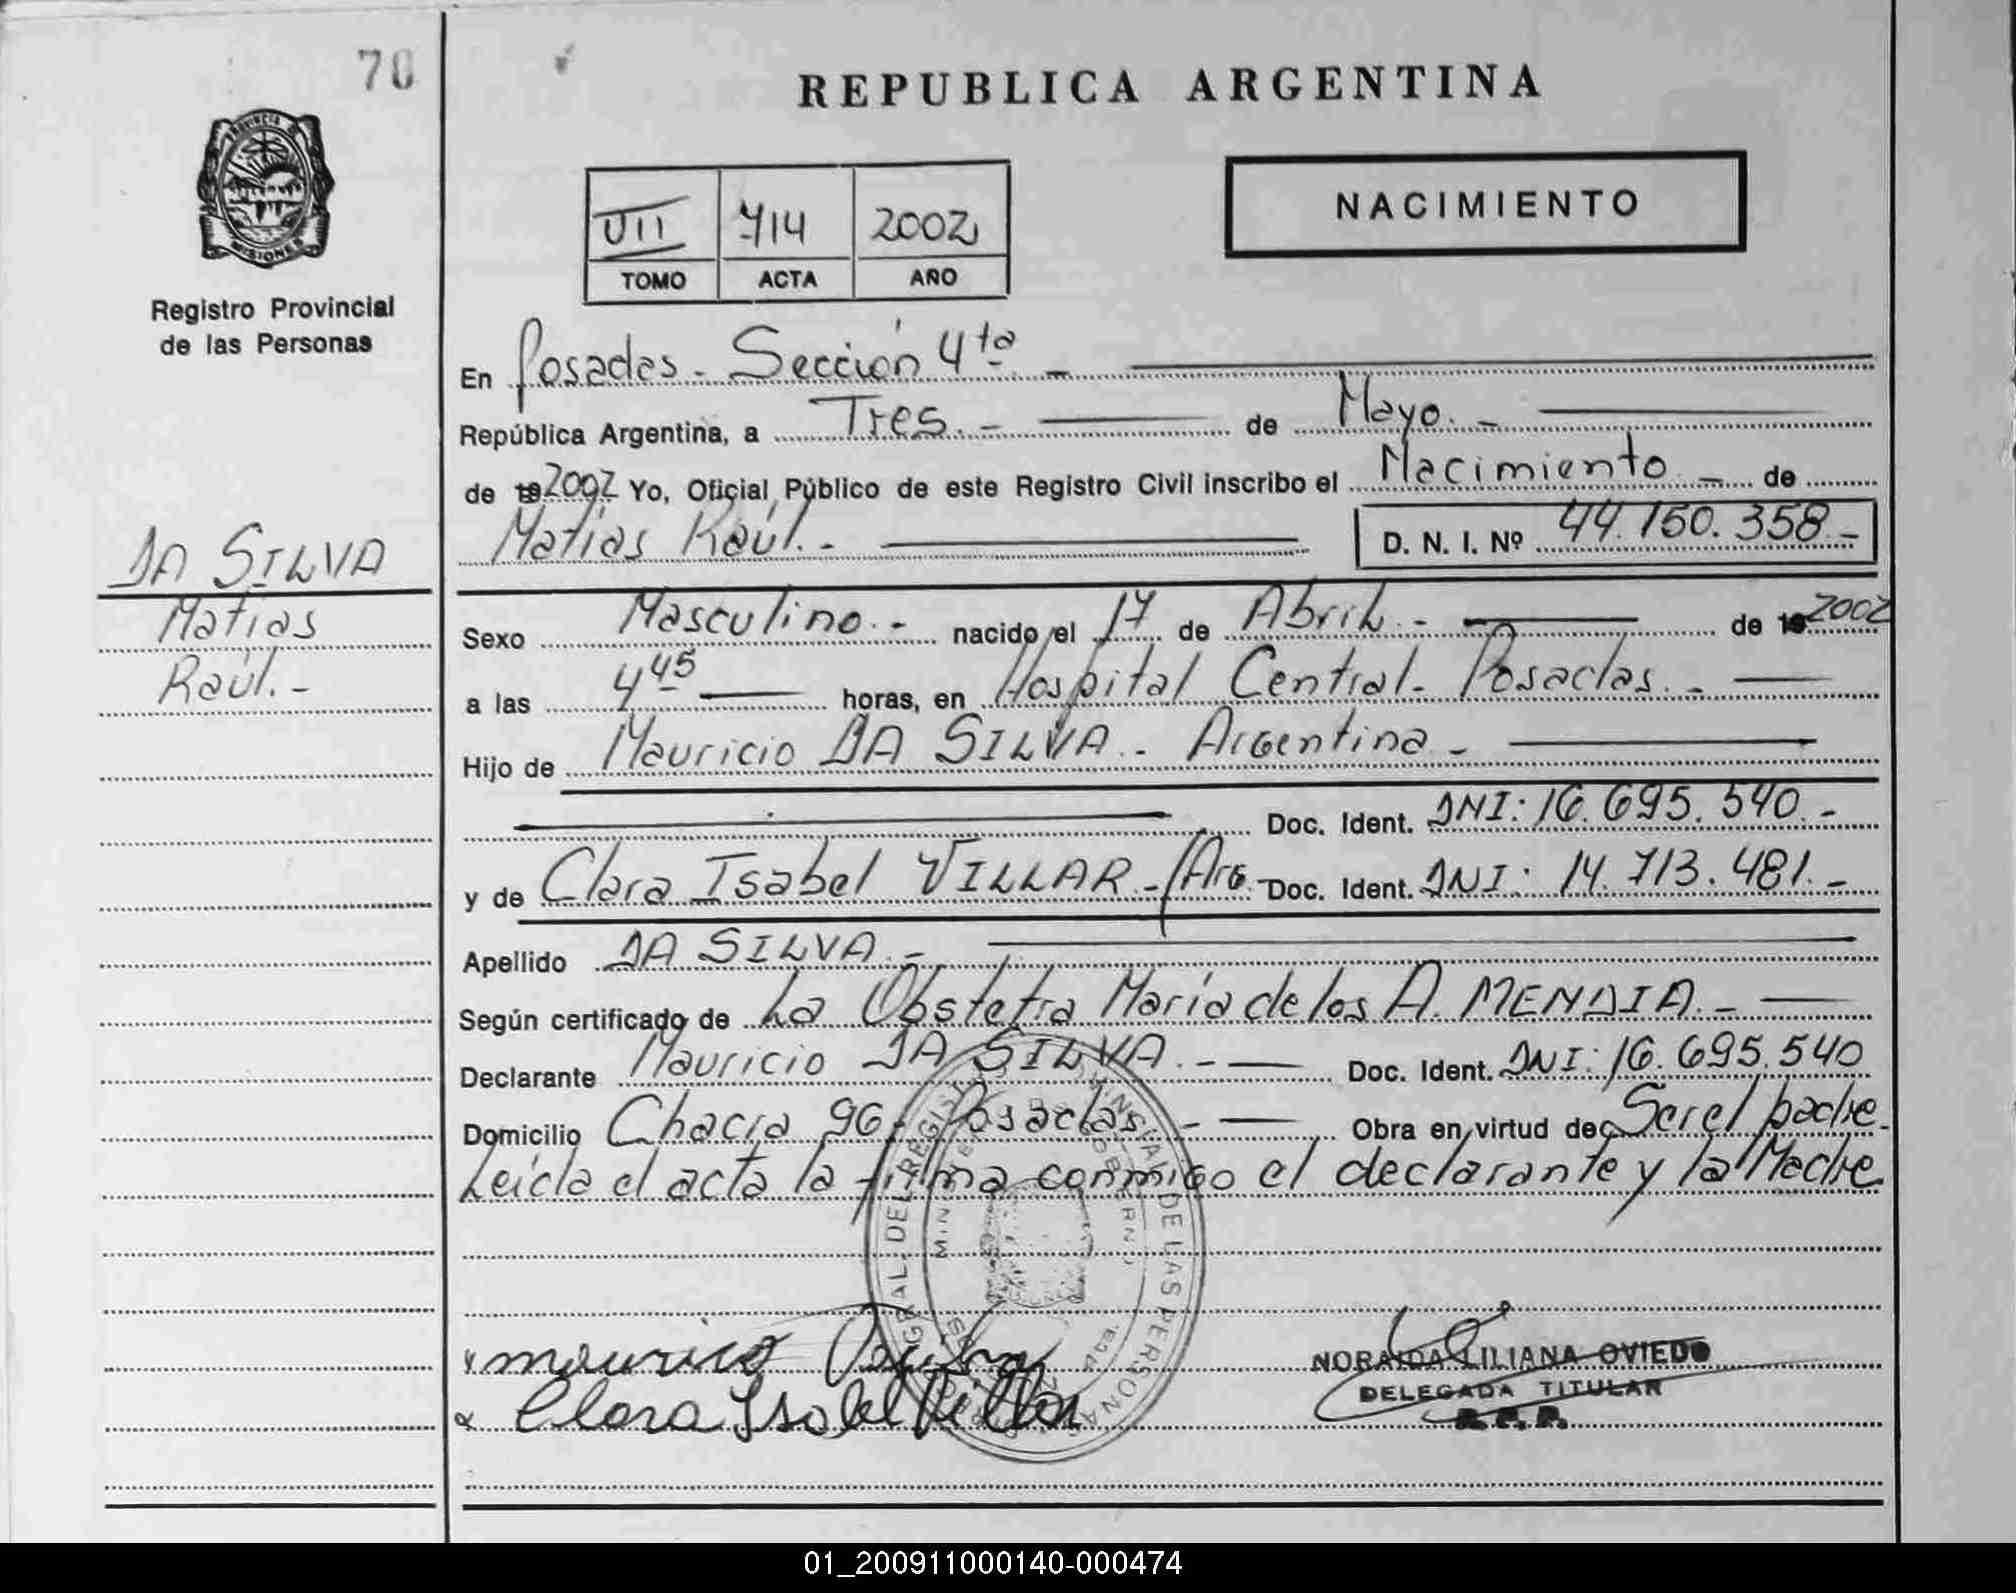 70
REPUBLICA ARGENTINA
PROVINCIA DE
MISIONES
Registro Provincial
de las Personas
VII 714 2002
TOMO ACTA AÑO
NACIMIENTO
En Posadas. - Sección 4ta. -
República Argentina, a Tres. - de Mayo. -
de 192002 Yo, Oficial Público de este Registro Civil inscribo el Nacimiento - de
Matías Raúl. - D. N. I. Nº 44.150.358 -
DA SILVA
Matías
Raúl. -
Sexo Masculino. - nacido el 17 de Abril. - de 192002
a las 4 45 horas, en Hospital Central - Posadas. -
Hijo de Mauricio DA SILVA. - Argentina -
Doc. Ident. DNI: 16.695.540. -
y de Clara Isabel VILLAR. - / Arg. - Doc. Ident. DNI: 14.713.481. -
Apellido DA SILVA. -
Según certificado de La Obstetra María de los A. MENDIA. -
Declarante Mauricio DA SILVA. - Doc. Ident. DNI: 16.695.540
Domicilio Chacra 96 - Posadas. - Obra en virtud de Ser el padre -
Leída el acta la firma conmigo el declarante y la Madre
DE LAS PERSONAS
mauricio Da Silva
Clara Isabel Villar
NORAIDA LILIANA OVIEDO
DELEGADA TITULAR
R.P.P.
01_200911000140-000474